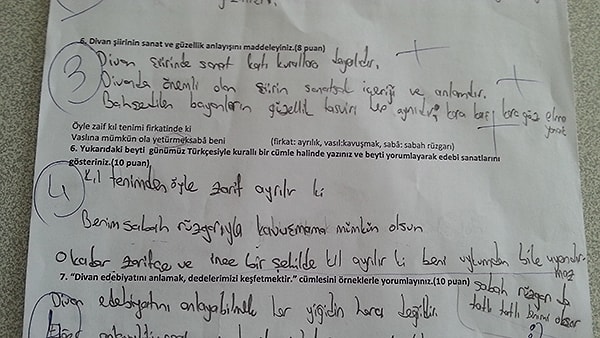 6. Divan şiirinin sanat ve güzellik anlayışını maddeleyiniz.(8 puan)
3
Divan şiirinde sanat katı kurallara dayalıdır.
Divanda önemli olan şiirin sanatsal içeriği ve anlamıdır.
Bahsedilen bayanların güzellik tasviri hep aynıdır; kara kaş, kara göz, elma yanak
Öyle zaif kıl tenimi firkatinde ki
Vaslına mümkün ola yetürmeksabâ beni (firkat: ayrılık, vasıl:kavuşmak, sabâ: sabah rüzgarı)
6. Yukarıdaki beyti günümüz Türkçesiyle kurallı bir cümle halinde yazınız ve beyti yorumlayarak edebi sanatlarını
gösteriniz.(10 puan)
4
Kıl tenimden öyle zarif ayrılır ki
Benim sabah rüzgarıyla kavuşmama mümkün olsun
O kadar zarifçe ve ince bir şekilde kıl ayrılır ki beni uykumdan bile uyandırmaz
7. "Divan edebiyatını anlamak, dedelerimizi keşfetmektir." cümlesini örneklerle yorumlayınız.(10 puan)
sabah rüzgarı da
tatlı tatlı
Divan edebiyatını anlayabilmek her yiğidin harcı değildir.